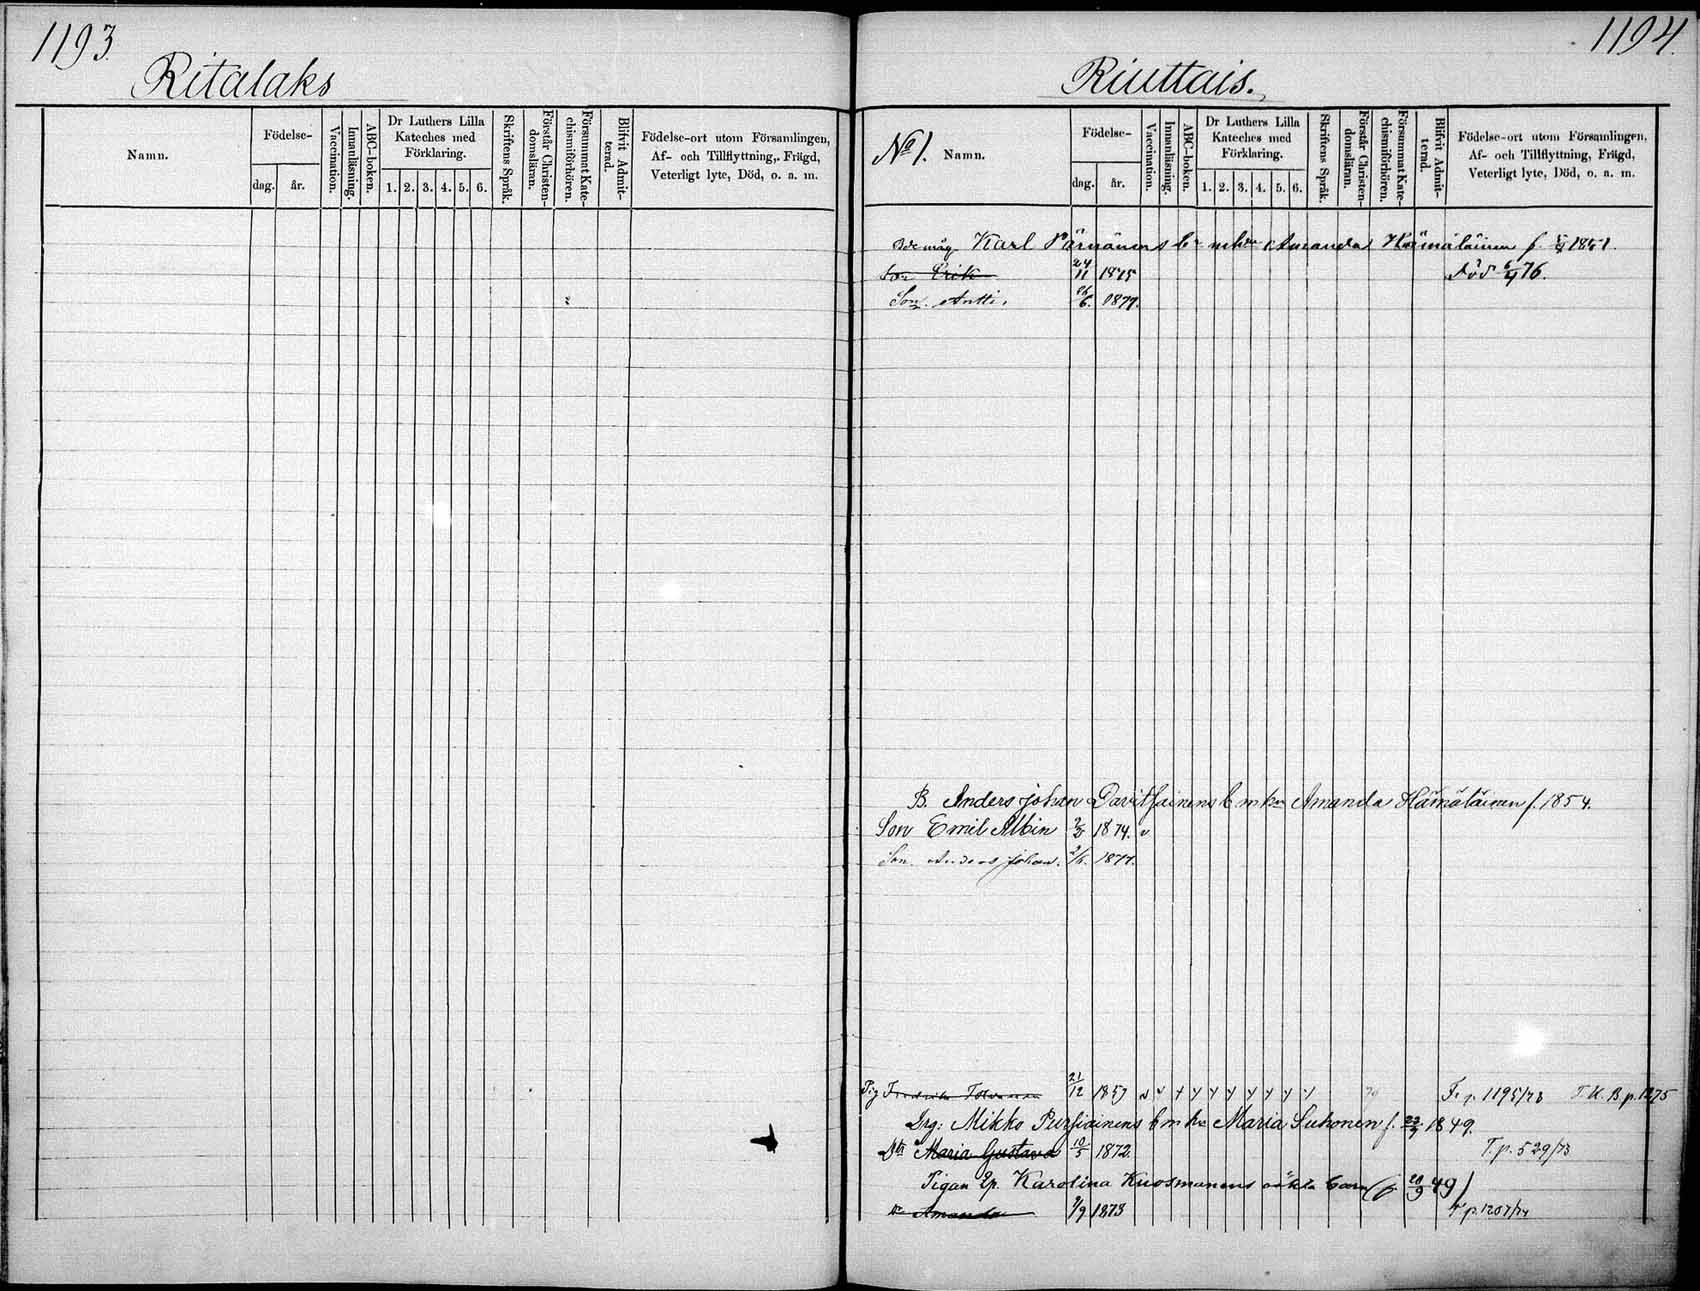 1193.
Ritalaks
Namn.
Födelse-
dag. år.
Vaccination.
Innanläsning.
ABC-boken.
Dr Luthers Lilla
Kateches med
Förklaring.
1. 2. 3. 4. 5. 6.
Skriftens Språk.
Förstår Christen-
domsläran.
Försummat Kate-
chismiförhören.
Blifvit Admit-
terad.
Födelse-ort utom Församlingen,
Af- och Tillflyttning, Frägd,
Veterligt lyte, Död, o. a. m.
1194.
Riuttais.
No 1. Namn.
Födelse-
dag. år.
Vaccination.
Innanläsning.
ABC-boken.
Dr Luthers Lilla
Kateches med
Förklaring.
1. 2. 3. 4. 5. 6.
Skriftens Språk.
Förstår Christen-
domsläran.
Försummat Kate-
chismiförhören.
Blifvit Admit-
terad.
Födelse-ort utom Församlingen,
Af- och Tillflyttning, Frägd,
Veterligt lyte, Död, o. a. m.
Bde måg Karl Pärnänens b m hu Amanda Hämäläinen f. 1851.
Son Erik 24/11 1875 Död 6/4 76.
Son. Antti. 26/6. 1877.
B. Anders Johan Davitsainens b m hu Amanda Hämäläinen f. 1854.
Son Emil Albin 1874. v
Son. Anders Johan. 1877.
Pig Fredrika Tolvanen 21/12 1857 F. p. 1195/73 T. K. B p. 1275
Drg: Mikko Pursiainens b m hu Maria Suhonen f. 1849.
Dtr Maria Gustava 10/5 1872. T. p. 529/73
Pigan Ep. Karolina Kuosmanens oäkta barn (f. 20/9 49)
Amanda 9/9 1873 T p. 1207/74